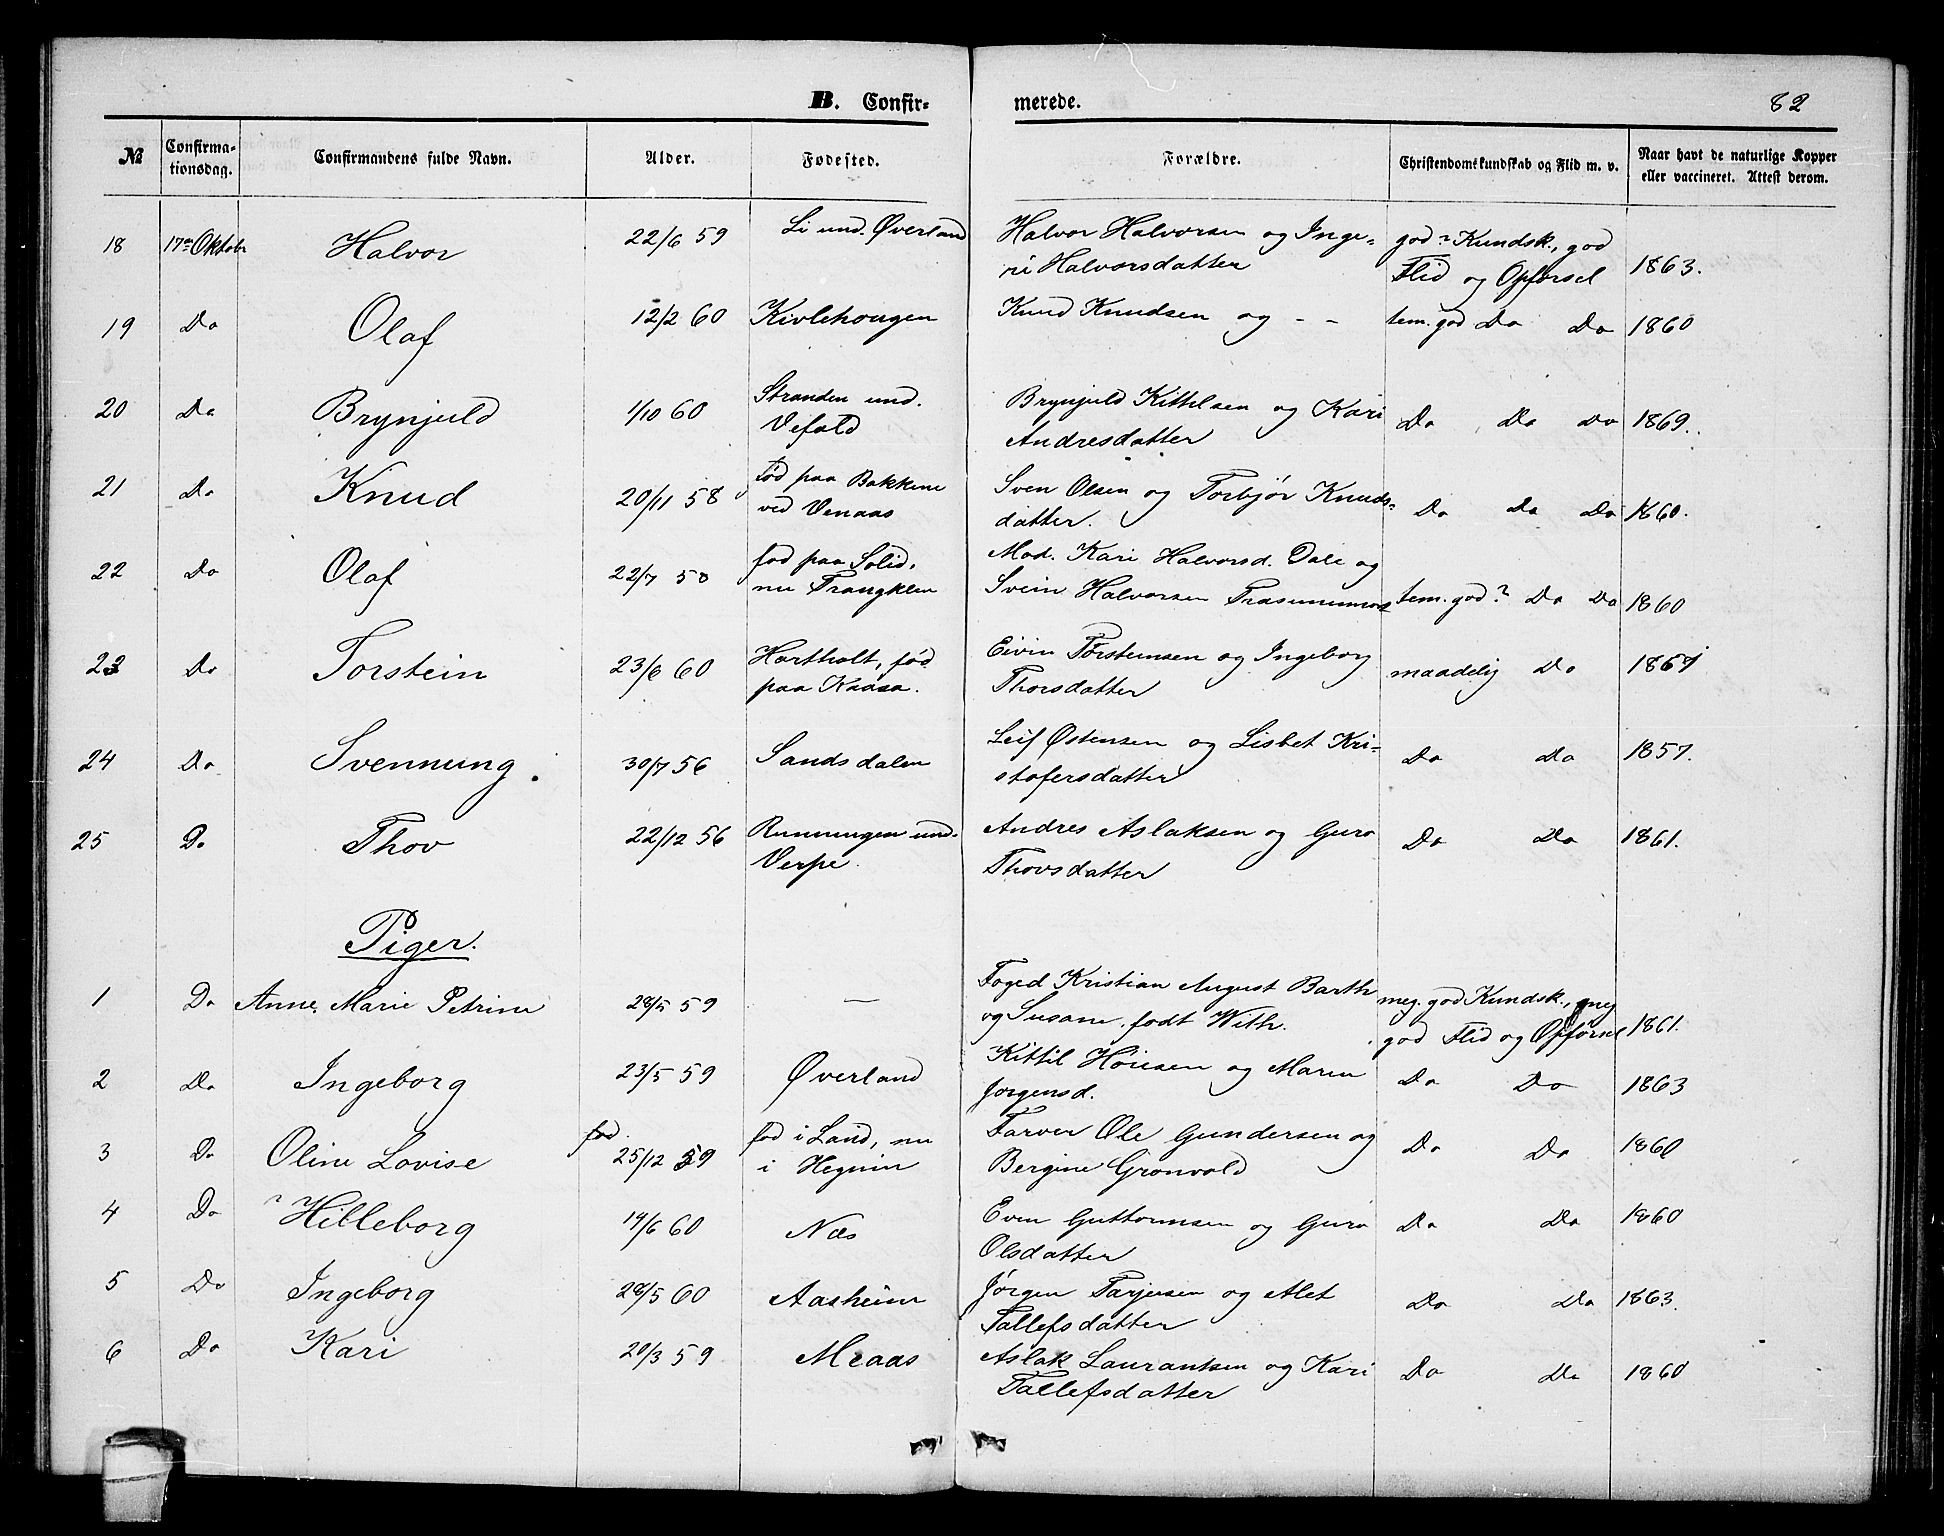 B. Confir-
merede.
82
№
Confirma-
tionsdag.
Confirmandens fulde Navn.
Alder.
Fødested.
Forældre.
Christendomskundskab og Flid m. v.
Naar havt de naturlige Kopper
eller vaccineret. Attest derom.
18 17de Oktobr Halvor 22/6 59 Li und. Øverland Halvor Halvorsen og Inge- god? Kundsk., god
ri Halvorsdatter Flid og Opførsel 1863.
19 Do Olaf 12/2 60 Kivlehougen Knud Knudsen og - - tem. god Do Do 1860
20 Do Brynjuld 1/10 60 Stranden und. Brynjuld Kittilsen og Kari Do Do Do 1869.
Vefald Andresdatter
21 Do Knud 20/11 58 Fød paa Bakkene Sven Olsen og Torbjør Knuds-
ved Venaas datter. Do Do Do 1860.
22 Do Olaf 22/7 58 fød paa Solid, Mod. Kari Halvorsd. Dale og
nu Trangklev Svein Halvorsen tem. god? Do Do 1860
23 Do Torstein 23/6 60 Hartholt, fød Eivin Torsteinsen og Ingeborg maadelig Do 1861
paa Kaasa. Thorsdatter
24 Do Svennung. 30/7 56 Sandsdalen Leif Østensen og Lisbet Kri- Do Do 1857.
stofersdatter
25 Do Thov 22/12 56 Runningen und. Andres Aslaksen og Guro Do Do 1861.
Verpe. Thovsdatter
Piger.
1 Do Anne Marie Petrine 28/5 59 — Foged Kristian August Barth meg. god Kundsk., meg
og Susane, født With. god Flid og Opførsel 1861.
2 Do Ingeborg 23/5 59 Øverland Kittil Høiesen og Maren Do Do 1863
Jørgensd.
3 Do Oline Lovise fød 25/12 59 fød i Land, nu Farver Ole Gundersen og Do Do 1860
i Hegnin Bergine Grønvold
4 Do Hilleborg 14/6 60 Næs Even Guttormsen og Guro Do Do 1860
Olsdatter
5 Do Ingeborg 28/5 60 Aasheim Jørgen Tarjeisen og Alet Do Do 1863.
Tallefsdatter
6 Do Kari 20/3 59 Meaas Aslak Laurantsen og Kari Do Do 1860
Tallefsdatter